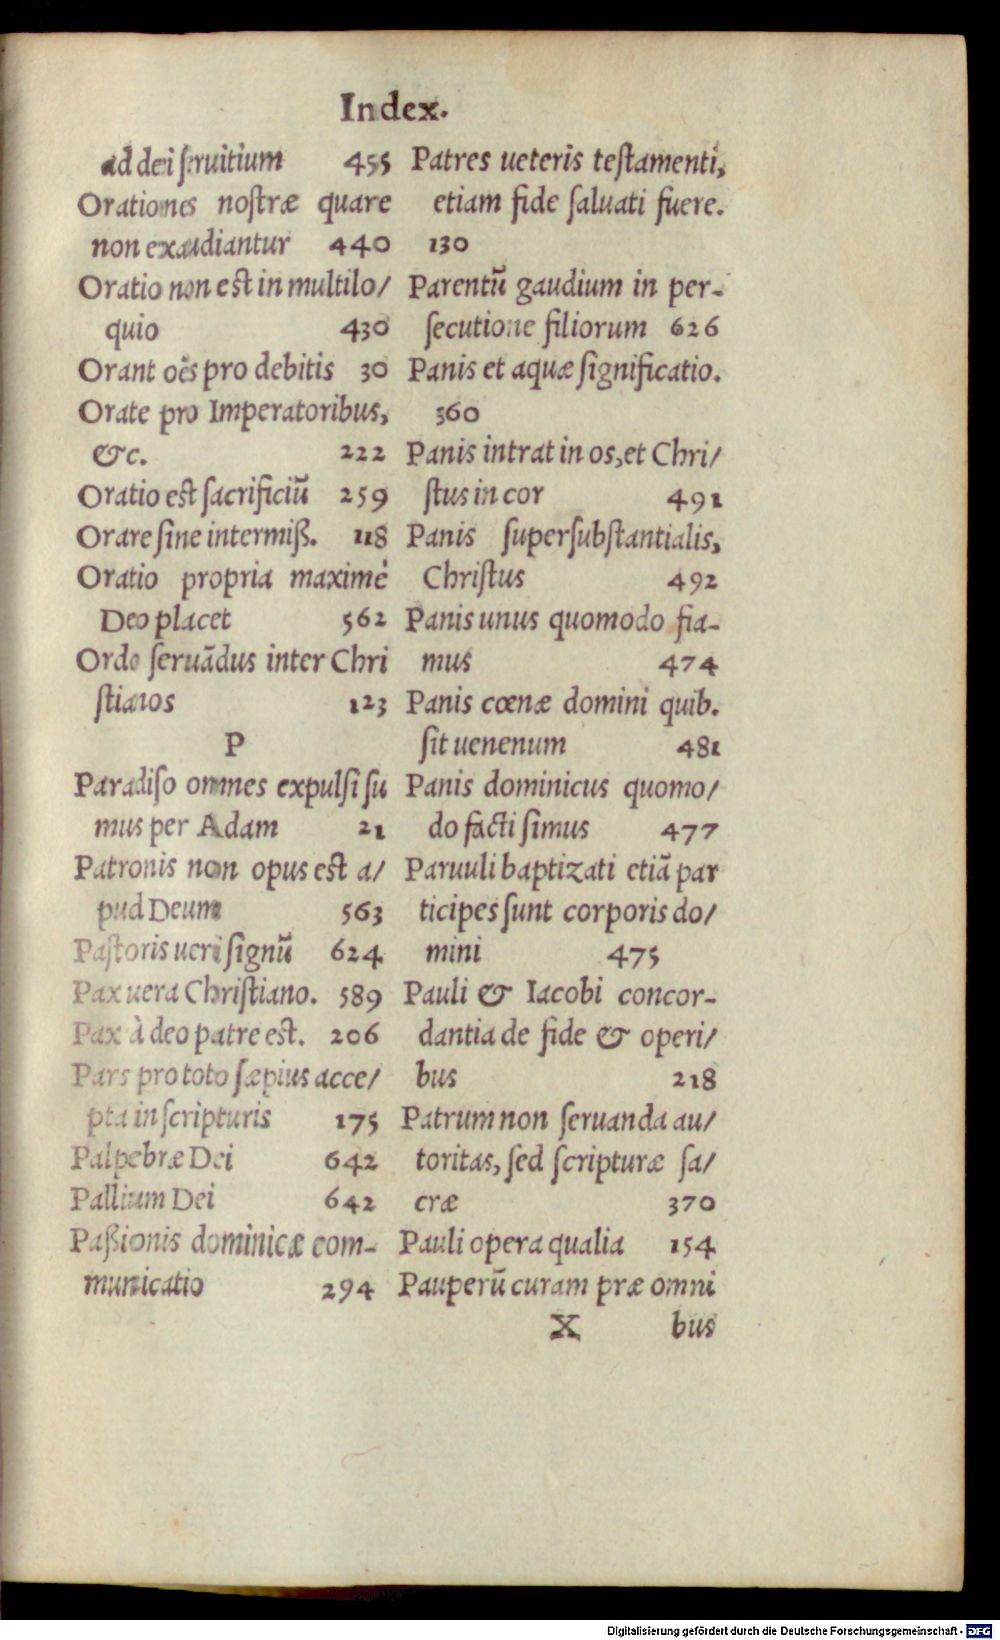 Index.
ad dei ſeruitium 455
Orationes noſtræ quare
non exaudiantur 440
Oratio non est in multilo/
quio 430
Orant oẽs pro debitis 30
Orate pro Imperatoribus,
&c. 222
Oratio est ſacrificiũ 259
Orare ſine intermiß. 118
Oratio propria maximè
Deo placet 562
Ordo ſeruãdus inter Chri
ſtianos 123
P
Paradiſo omnes expulſi ſu
mus per Adam 21
Patronis non opus est a/
pud Deum 563
Paſtoris ueri ſignũ 624
Pax uera Chriſtiano. 589
Pax à deo patre est. 206
Pars pro toto ſæpius acce/
pta in ſcripturis 175
Palpebræ Dei 642
Pallium Dei 642
Paßionis dominicæ com-
municatio 294
Patres ueteris teſtamenti,
etiam fide ſaluati fuere.
130
Parentũ gaudium in per-
ſecutione filiorum 626
Panis et aquæ ſignificatio.
360
Panis intrat in os, et Chri/
ſtus in cor 491
Panis superſubſtantialis,
Chriſtus 492
Panis unus quomodo fia-
mus 474
Panis cœnæ domini quib.
ſit uenenum 481
Panis dominicus quomo/
do facti ſimus 477
Paruuli baptizati etiã par
ticipes ſunt corporis do/
mini 475
Pauli & Iacobi concor-
dantia de fide & operi/
bus 218
Patrum non ſeruanda au/
toritas, ſed ſcripturæ ſa/
cræ 370
Pauli opera qualia 154
Pauperũ curam præ omni
X bus
Digitalisierung gefördert durch die Deutsche Forschungsgemeinschaft - DFG